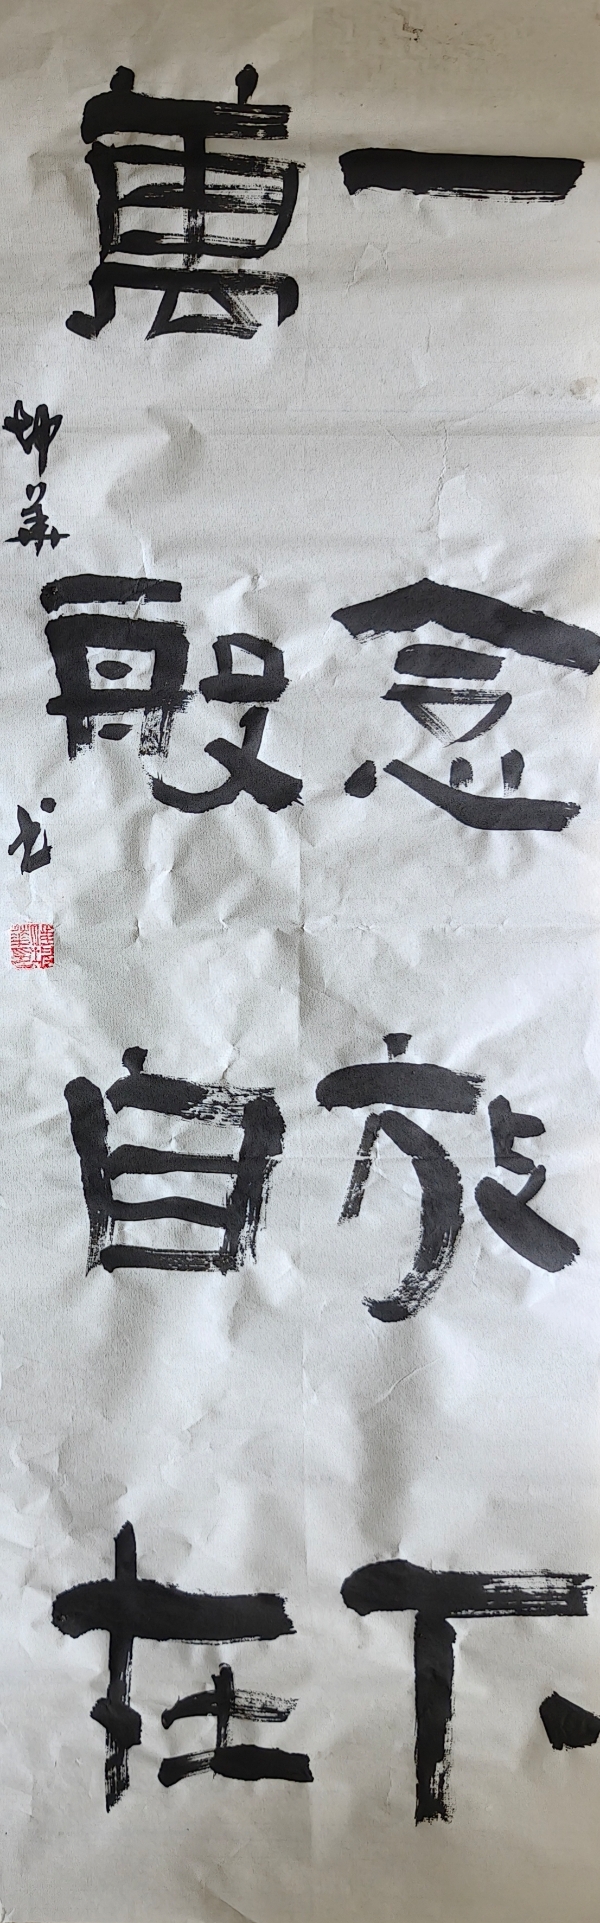 一念放下
萬般自在
坤華书